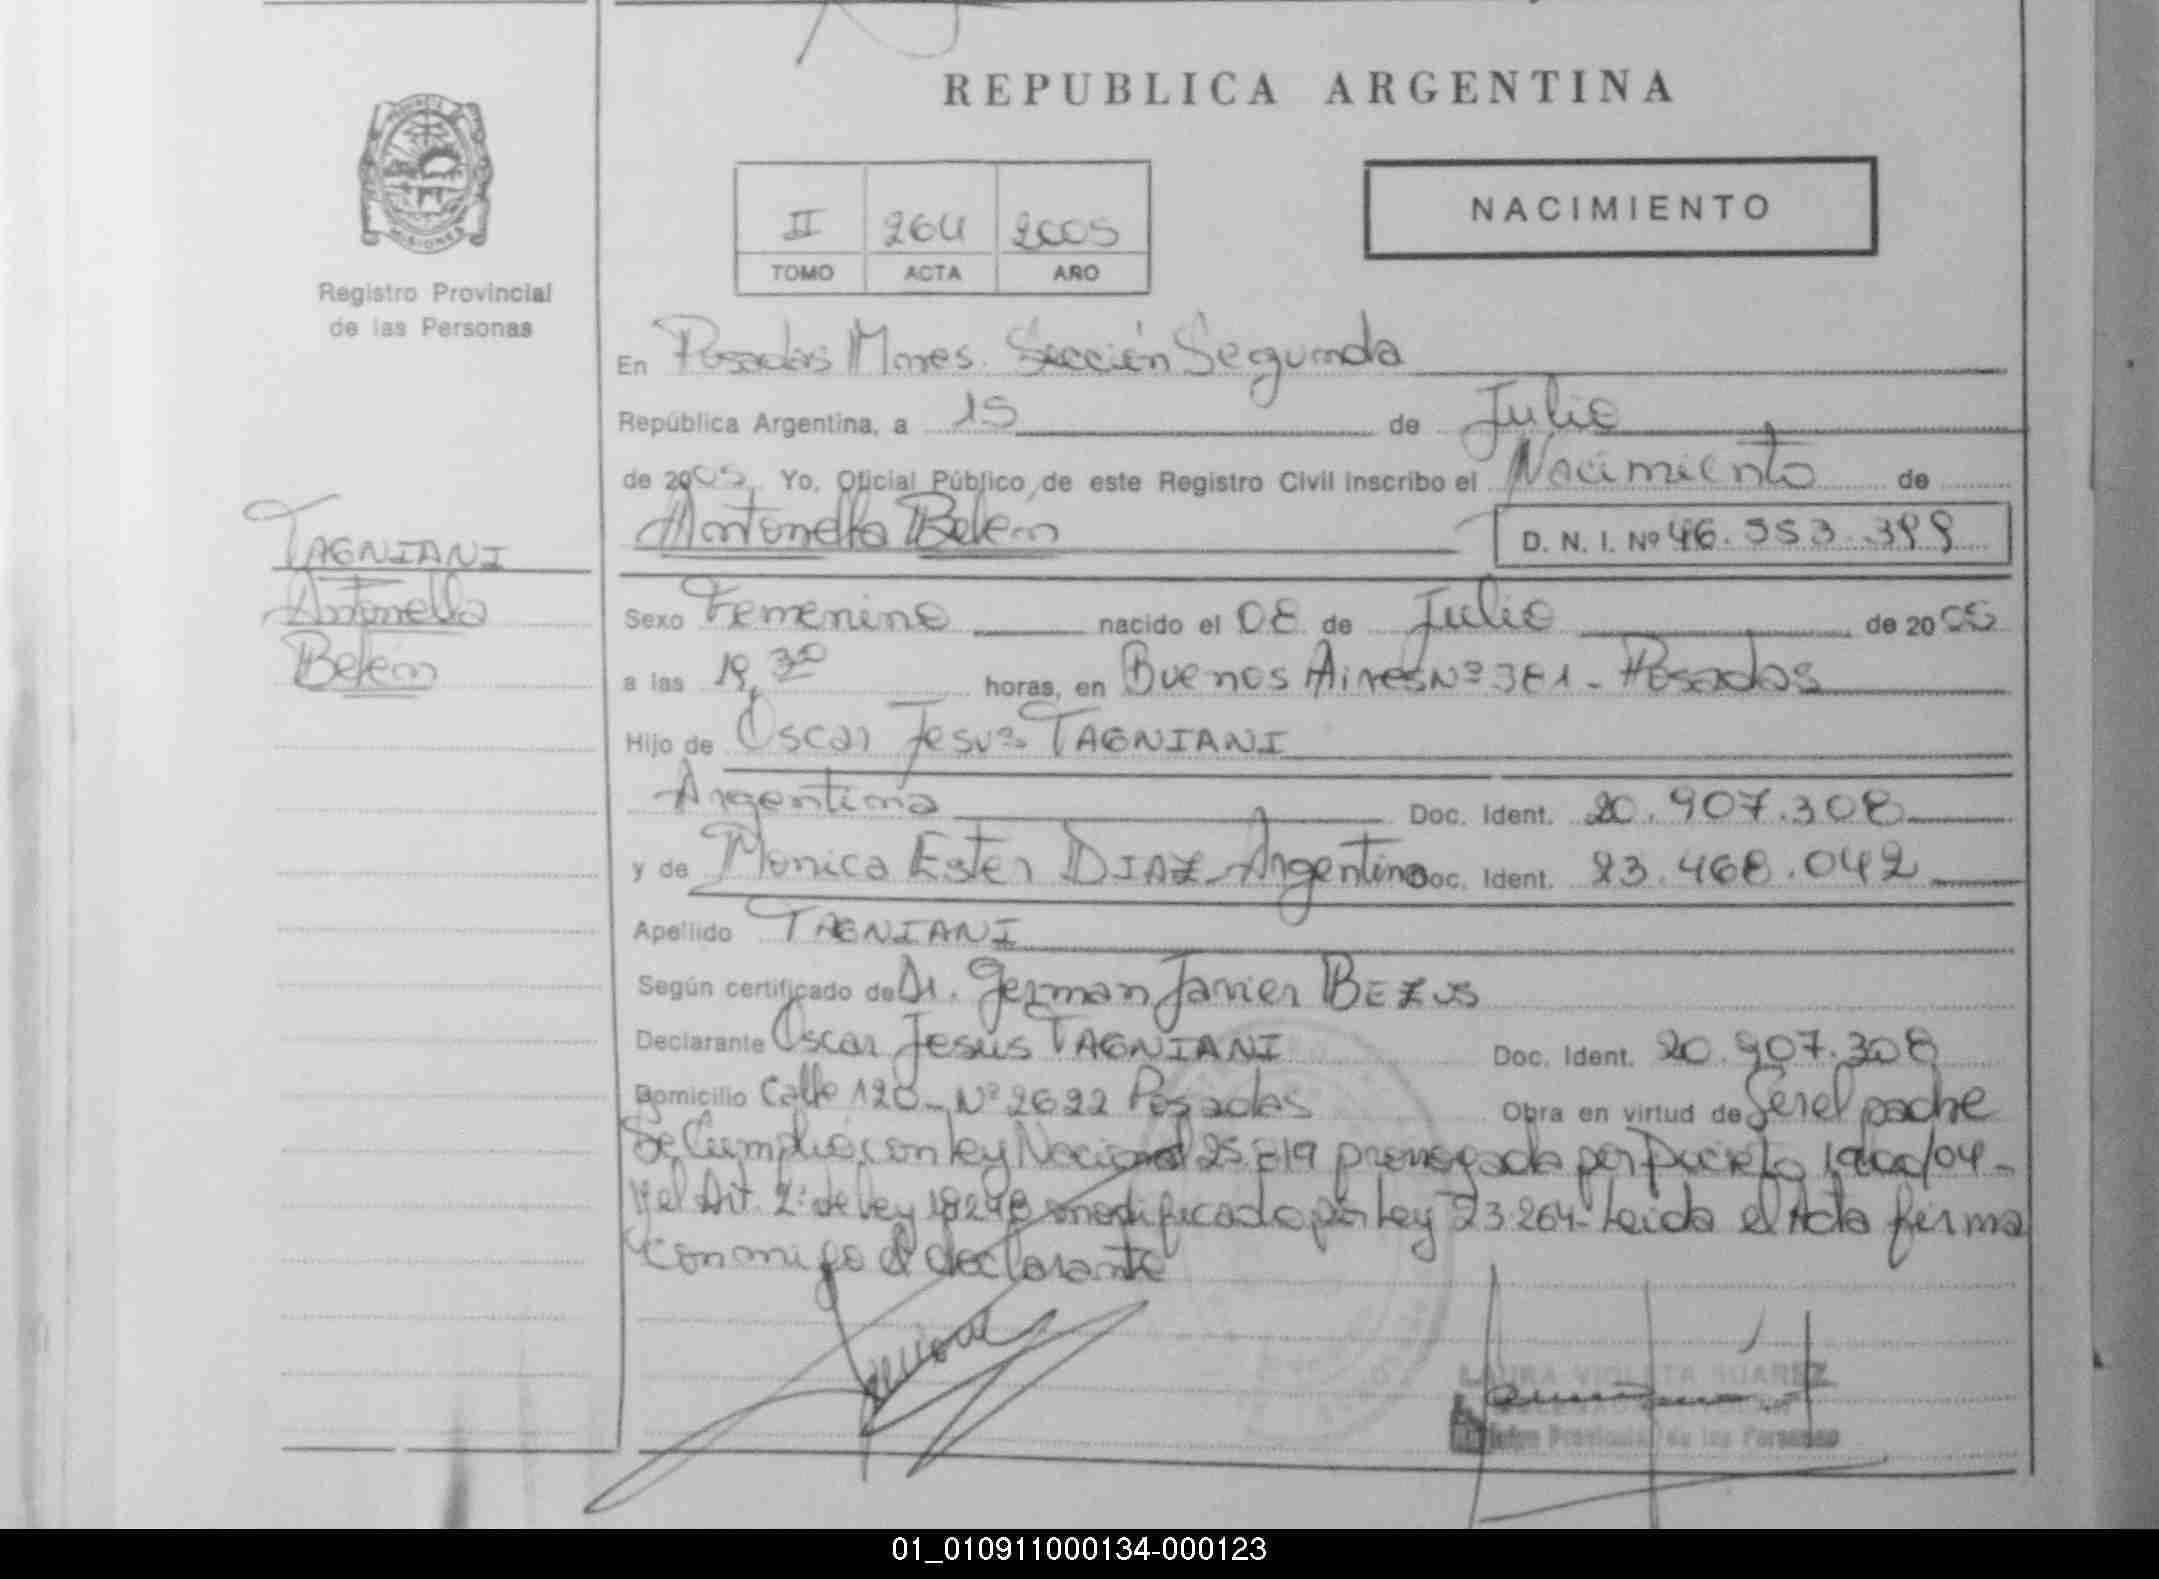 REPUBLICA ARGENTINA
PROVINCIA
MISIONES
Registro Provincial
de las Personas
II 264 2005
TOMO ACTA AÑO
NACIMIENTO
En Posadas Mnes. Sección Segunda
República Argentina, a 15 de Julio
de 2005 Yo, Oficial Público de este Registro Civil inscribo el Nacimiento de
Antonella Belén D. N. I. Nº 46.553.399
TAGNIANI
Antonella
Belén
Sexo Femenino nacido el 08 de Julio de 2005
a las 19,30 horas, en Buenos Aires Nº 381 - Posadas
Hijo de Oscar Jesus TAGNIANI
Argentina Doc. Ident. 20.907.308
y de Monica Ester DIAZ - Argentina Doc. Ident. 23.468.042
Apellido TAGNIANI
Según certificado de Dr. German Javier BEZUS
Declarante Oscar Jesus TAGNIANI Doc. Ident. 20.907.308
Domicilio Calle 120 - Nº 2622 Posadas Obra en virtud de Ser el padre
Se Cumplió con ley Nacional 25.819 prorrogada por Decreto /04 -
Y el Art. 2º de ley 18248 modificado por Ley 23.264 - Leida el Acta firma
conmigo el declarante
LAURA VIOLETA SUAREZ
Provincial de las Personas
01_010911000134-000123